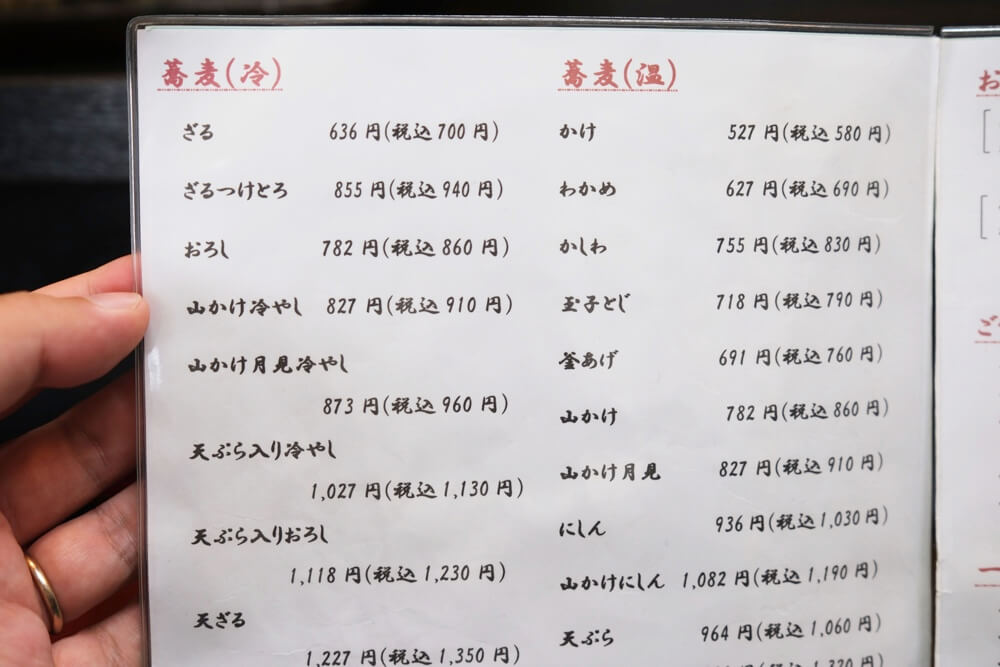 蕎麦(冷)
ざる 636 円(税込 700 円)
ざるつけとろ 855 円(税込 940 円)
おろし 782 円(税込 860 円)
山かけ冷やし 827 円(税込 910 円)
山かけ月見冷やし
873 円(税込 960 円)
天ぷら入り冷やし
1,027 円(税込 1,130 円)
天ぷら入りおろし
1,118 円(税込 1,230 円)
天ざる
1,227 円(税込 1,350 円)
蕎麦(温)
かけ 527 円(税込 580 円)
わかめ 627 円(税込 690 円)
かしわ 755 円(税込 830 円)
玉子とじ 718 円(税込 790 円)
釜あげ 691 円(税込 760 円)
山かけ 782 円(税込 860 円)
山かけ月見 827 円(税込 910 円)
にしん 936 円(税込 1,030 円)
山かけにしん 1,082 円(税込 1,190 円)
天ぷら 964 円(税込 1,060 円)
お
ご